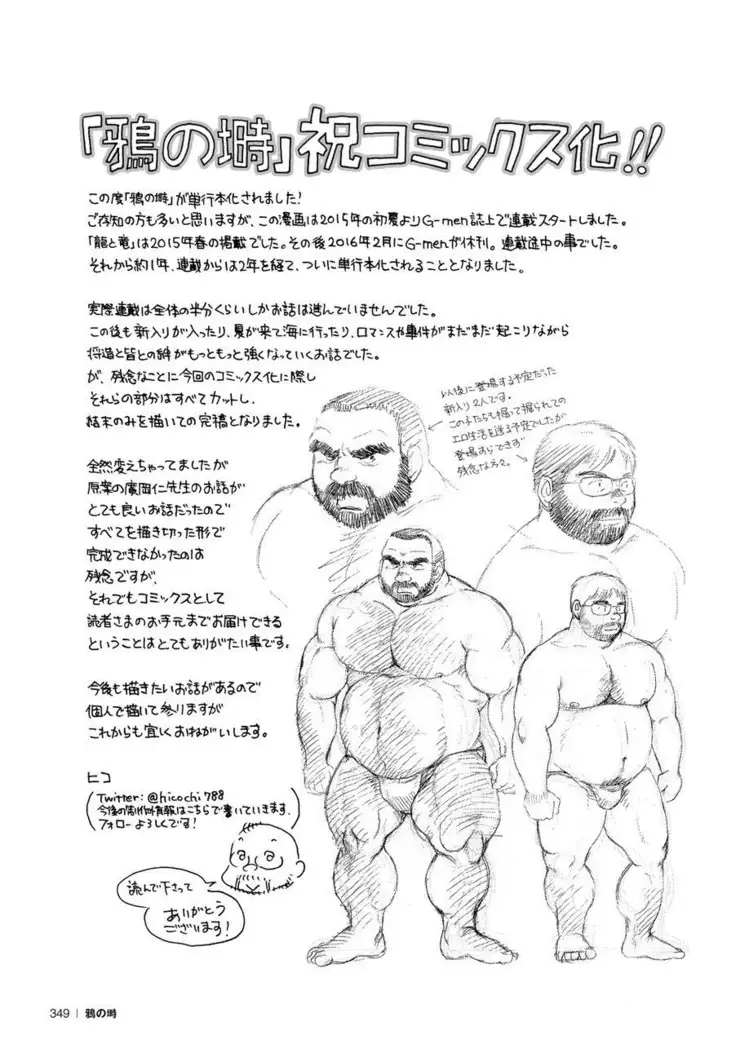 「鴉の塒」祝コミックス化!!
この度「鴉の塒」が単行本化されました!
ご存知の方も多いと思いますが、この漫画は2015年の初夏よりG-men誌上で連載スタートしました。
「龍と竜」は2015年春の掲載でした。その後2016年2月にG-menが休刊。連載途中の事でした。
それから約1年、連載からは2年を経て、ついに単行本化されることとなりました。
実際連載は全体の半分くらいしかお話は進んでいませんでした。
この後も新入りが入ったり、夏が来て海に行ったり、ロマンスや事件がまだまだ起こりながら
将造と皆との絆がもっともっと強くなっていくお話でした。
が、残念なことに今回のコミックス化に際し
それらの部分はすべてカットし、
結末のみを描いての完稿となりました。
全然変えちゃってましたが
原案の廣岡仁先生のお話が
とても良いお話だったので
すべてを描き切った形で
完成できなかったのは
残念ですが、
それでもコミックスとして
読者さまのお手元までお届けできる
ということはとてもありがたい事です。
今後も描きたいお話があるので
個人で描いて参りますが
これからも宜しくおねがいします。
ヒコ
Twitter: @hicochi788
今後の制作の情報はこちらで書いていきます。
フォローよろしくです!
読んで下さって
ありがとう
ございます!
以後に登場する予定だった
新入り2人です。
この子たちも掘って掘られての
エロ生活を送る予定でしたが
登場すらできず
残念な方々。
349 | 鴉の塒